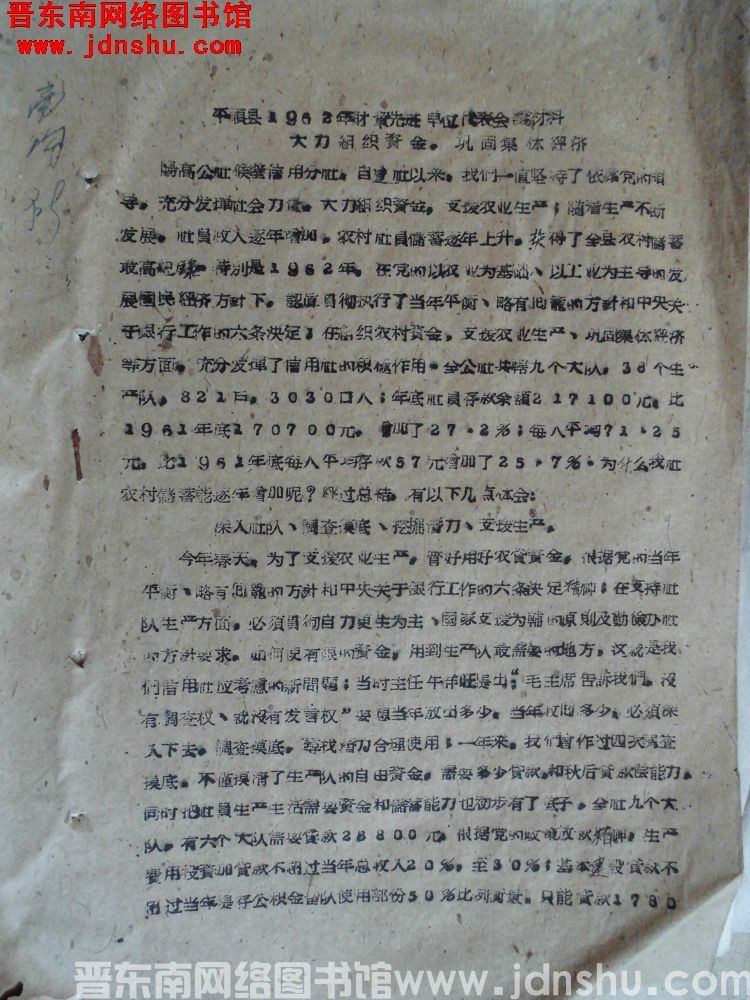 晋东南网络图书馆
www.jdnshu.com
平順县1962年财贸先进单位代表会議材料
大力組织資金，巩固集体經济
陽高公社候壁信用分社，自建社以来，我们一直坚持了依靠党的領
导，充分发揮社会力量，大力組织資金，支援农业生产；随着生产不断
发展，社員收入逐年增加，农村社員儲蓄逐年上升，获得了全县农村儲蓄
最高紀錄。特別是1962年，在党的以农业为基础、以工业为主导的发
展国民經济方針下，認眞貫彻执行了当年平衡、略有回籠的方針和中央关
于銀行工作的六条决定；在組织农村資金，支援农业生产、巩固集体經济
等方面，充分发揮了信用社的积极作用。全公社共轄九个大队，38个生
产队，821戶，3030口人；年底社員存款余額217100元，比
1961年底170700元，增加了27.2%；每人平均71.25
元，比1961年底每人平均存款57元增加了25.7%。为什么我社
农村儲蓄能逐年增加呢？經过总结，有以下几点体会：
深入社队、調查摸底、挖掘潜力、支援生产。
今年春天，为了支援农业生产，管好用好农貸資金，根据党的当年
平衡、略有回籠的方針和中央关于銀行工作的六条决定精神；在支持社
队生产方面，必須貫彻自力更生为主、國家支援为輔的原則及勤儉办社
的方針要求，如何使有限的資金，用到生产队最需要的地方，这就是我
們信用社应考慮的新問題；当时主任 提出："毛主席告訴我們，沒
有調查权、就沒有发言权"要想当年放出多少，当年收回多少，必須深
入下去，調查摸底，尋找潜力合理使用；一年来，我们曾作过四次調查
摸底，不僅摸清了生产队的自由資金，需要多少貸款，和秋后貸款偿能力，
同时把社員生产生活需要資金和儲蓄能力也初步有了底子。全社九个大
队，有六个大队需要貸款28800元，根据党的政策放款精神，生产
費用投資加貸款不超过当年总收入20%，至30%；基本建設貸款不
超过当年提存公积金留队使用部份50%比列对量，只能貸款1780
晋东南网络图书馆www.jdnshu.com